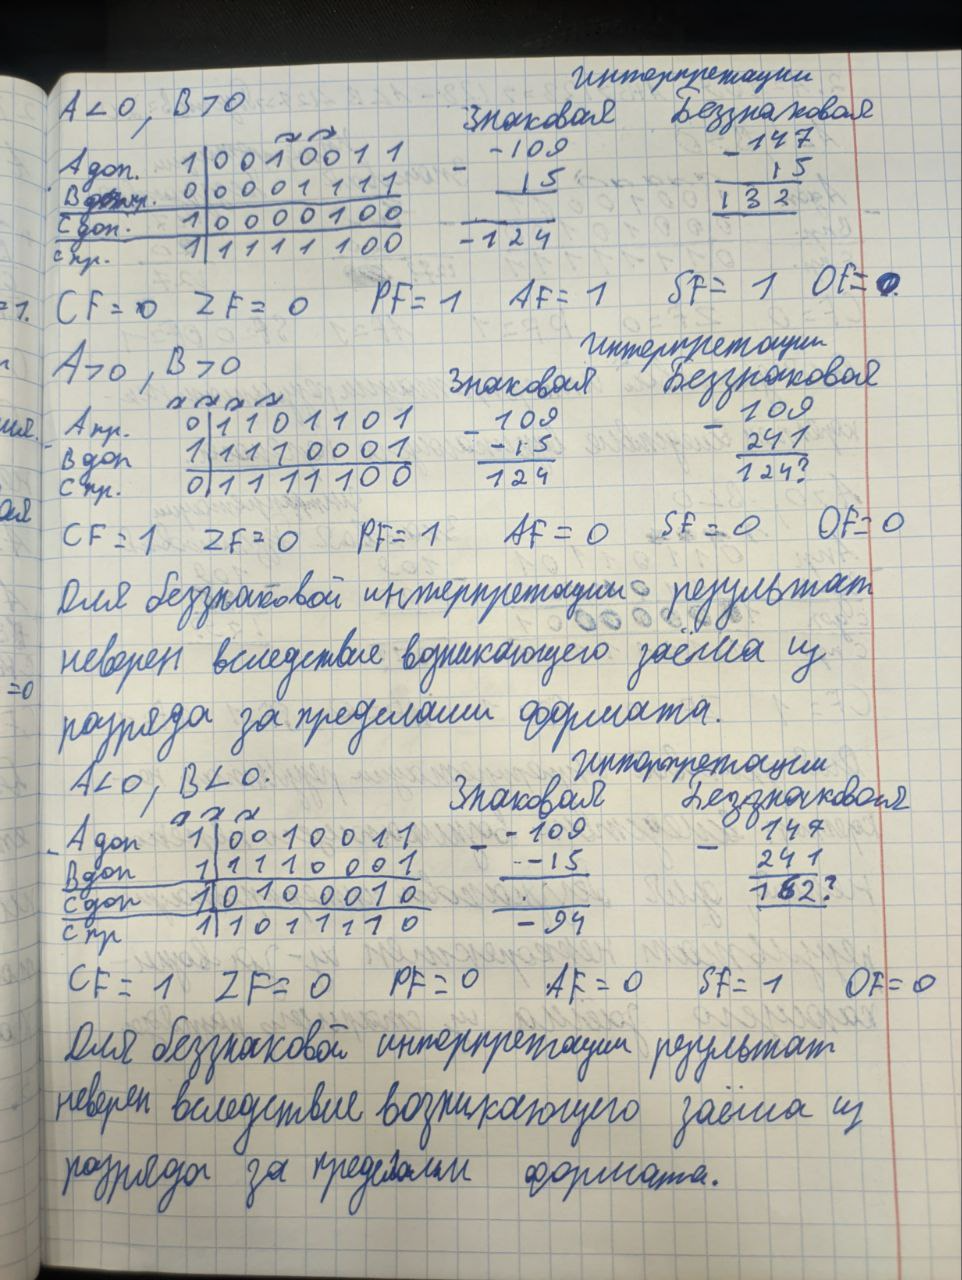 Интерпретации
A<0, B>0 Знаковая Беззнаковая
Aдоп. 1|0010011 -109 147
- Bпр. 0|0001111 - 15 - 15
Cдоп. 1|0000100 132
Cпр. 1|1111100 -124
CF=0 ZF=0 PF=1 AF=1 SF=1 OF=0.
Интерпретации
A>0, B>0 Знаковая Беззнаковая
Aпр. 0|1101101 - 109 - 109
Bдоп 1|1110001 -15 241
Cпр. 0|1111100 124 124?
CF=1 ZF=0 PF=1 AF=0 SF=0 OF=0
Для беззнаковой интерпретации результат
неверен вследствие возникающего заёма из
разряда за пределами формата.
Интерпретации
A<0, B<0. Знаковая Беззнаковая
- Aдоп 1|0010011 - -109 - 147
Bдоп 1|1110001 -15 241
Cдоп 1|0100010 162?
Cпр 1|1011110 -94
CF=1 ZF=0 PF=0 AF=0 SF=1 OF=0
Для беззнаковой интерпретации результат
неверен вследствие возникающего заёма из
разряда за пределами формата.
=1.
=0